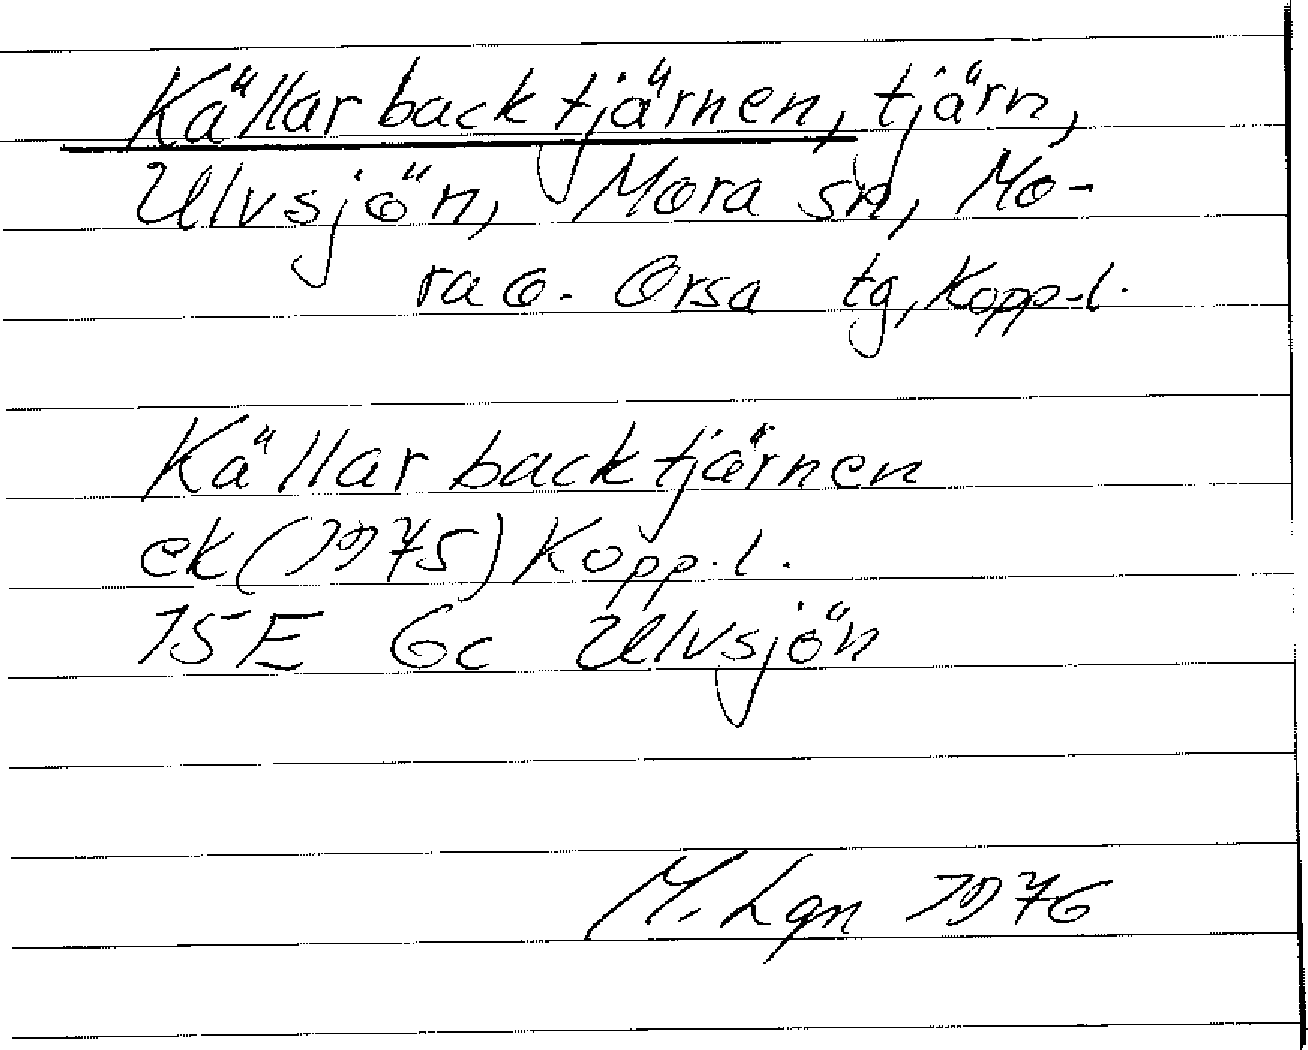 Källarbacktjärnen, tjärn,
Ulvsjön, Mora sn, Mo-
ra o. Orsa tg, Kopp.l.
Källarbacktjärnen
ek (1975) Kopp.l.
15E 6c Ulvsjön
M. Lgn 1976